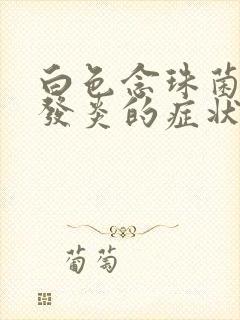 白色念珠菌
發炎的症狀
葡萄